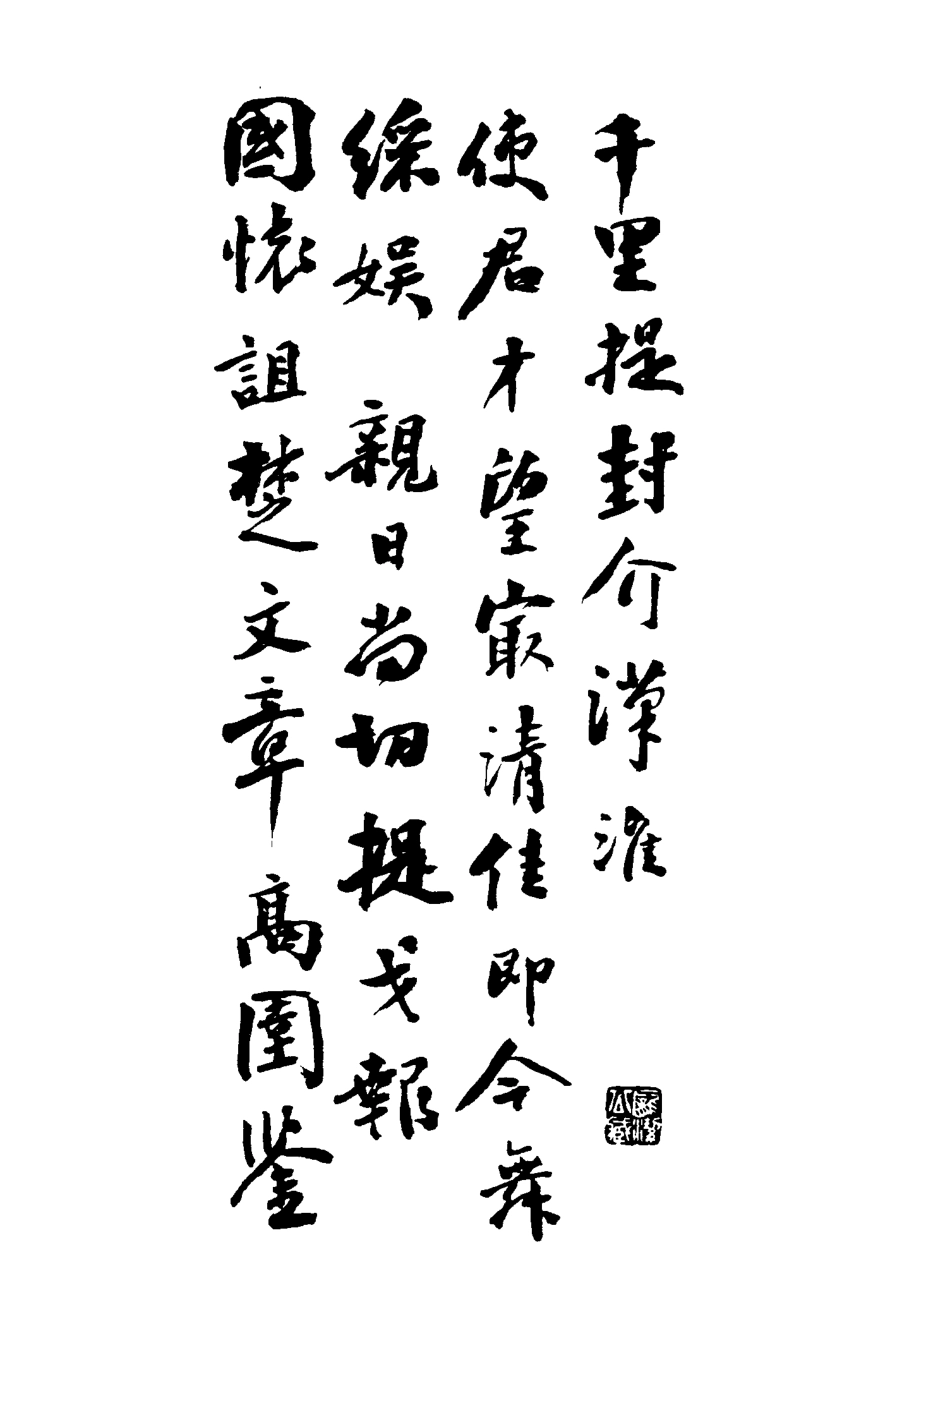 千里提封介漢淮
使君才望寂清佳即今舞
綵娛親日尚切提戈報
國懷詛楚文章高圍鉴